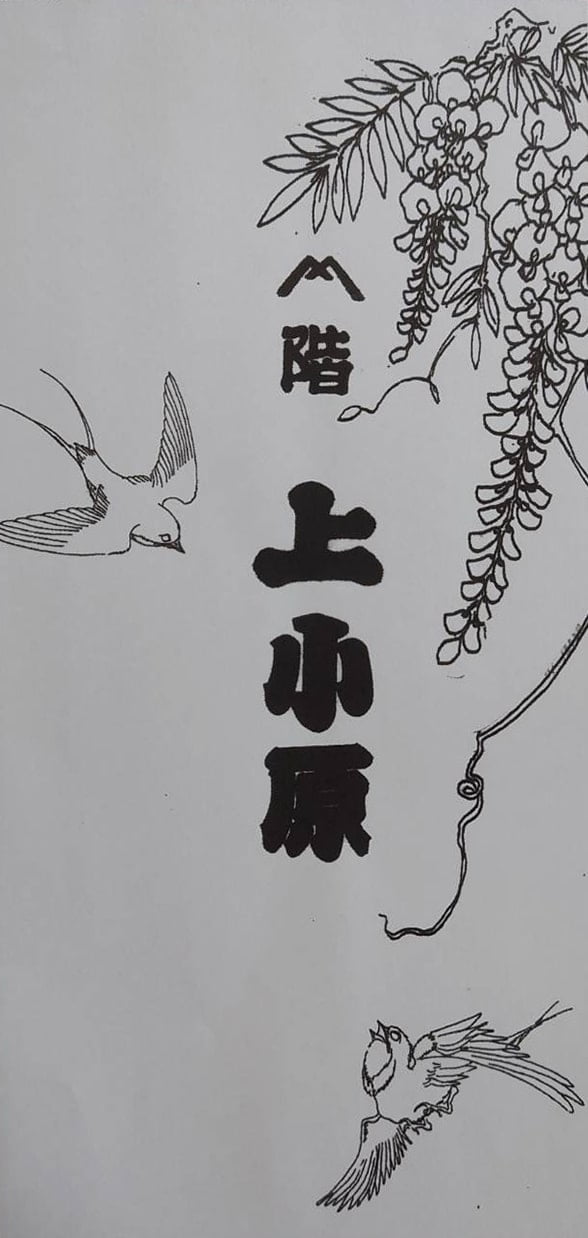 階
上小原